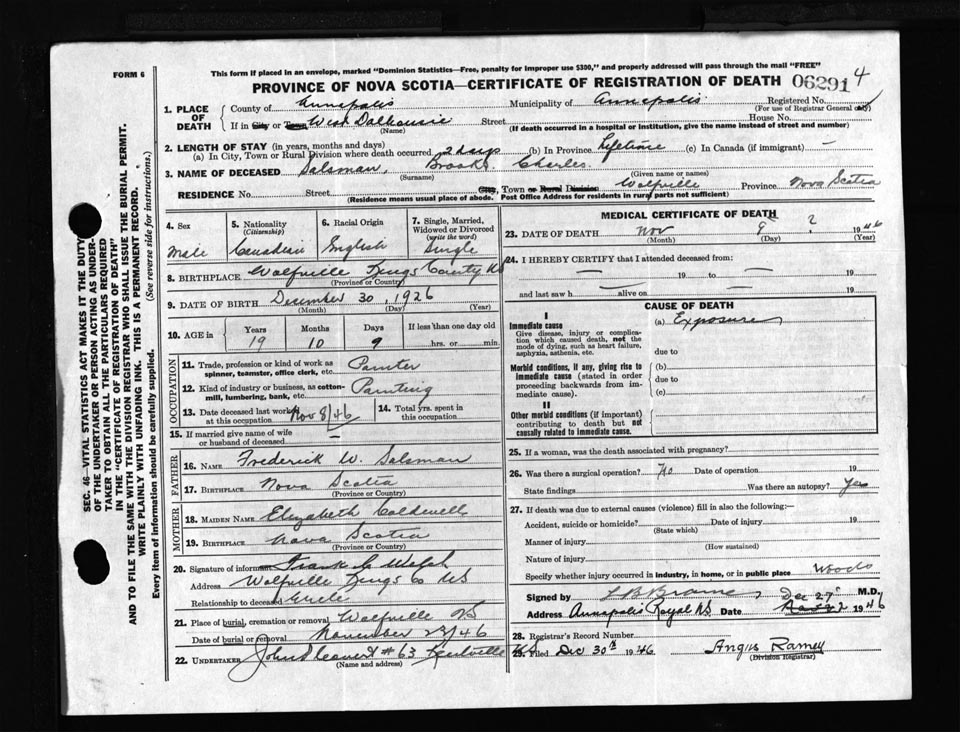 FORM 6
This form if placed in an envelope, marked "Dominion Statistics—Free, penalty for improper use $300," and properly addressed will pass through the mail "FREE"
PROVINCE OF NOVA SCOTIA—CERTIFICATE OF REGISTRATION OF DEATH 06291 4
1. PLACE OF DEATH County of Annapolis Municipality of Annapolis Registered No.
(For use of Registrar General only)
If in City or Town West Dalhousie Street House No.
(Name) (If death occurred in a hospital or institution, give the name instead of street and number)
2. LENGTH OF STAY (in years, months and days)
(a) In City, Town or Rural Division where death occurred 2 days (b) In Province Lifetime (c) In Canada (if immigrant) —
3. NAME OF DECEASED Salsman, Brooks Charles.
(Surname) (Given name or names)
RESIDENCE No. Street City, Town or Rural Division Wolfville Province Nova Scotia
(Residence means usual place of abode. Post Office Address for residents in rural parts not sufficient)
4. Sex
Male
5. Nationality
(Citizenship)
Canadian
6. Racial Origin
English
7. Single, Married, Widowed or Divorced
(write the word)
Single
8. BIRTHPLACE Wolfville Kings County NS
(Province or Country)
9. DATE OF BIRTH December 30, 1926
(Month) (Day) (Year)
10. AGE in Years Months Days If less than one day old
19 10 9 hrs. or min.
OCCUPATION
11. Trade, profession or kind of work as spinner, teamster, office clerk, etc. Painter
12. Kind of industry or business, as cotton-mill, lumbering, bank, etc. Painting
13. Date deceased last worked at this occupation Nov 8/46
14. Total yrs. spent in this occupation
15. If married give name of wife or husband of deceased —
FATHER
16. NAME Frederick W. Salsman
17. BIRTHPLACE Nova Scotia
(Province or Country)
MOTHER
18. MAIDEN NAME Elizabeth Coldwell
19. BIRTHPLACE Nova Scotia
(Province or Country)
20. Signature of informant Frank C Welsh
Address Wolfville Kings Co NS
Relationship to deceased Uncle
21. Place of burial, cremation or removal Wolfville NS
Date of burial or removal November 23/46
22. UNDERTAKER #63 Kentville
(Name and address)
MEDICAL CERTIFICATE OF DEATH
23. DATE OF DEATH Nov 9 ? 1946
(Month) (Day) (Year)
24. I HEREBY CERTIFY that I attended deceased from:
— 19 to — 19
and last saw h — alive on — 19
CAUSE OF DEATH
I
Immediate cause
Give disease, injury or complication which caused death, not the mode of dying, such as heart failure, asphyxia, asthenia, etc.
(a) Exposure
due to
Morbid conditions, if any, giving rise to immediate cause (stated in order proceeding backwards from immediate cause).
(b)
due to
(c)
II
Other morbid conditions (if important) contributing to death but not causally related to immediate cause.
25. If a woman, was the death associated with pregnancy?
26. Was there a surgical operation? No Date of operation 19
State findings Was there an autopsy? Yes
27. If death was due to external causes (violence) fill in also the following:—
Accident, suicide or homicide? Date of injury 19
(State which)
Manner of injury
(How sustained)
Nature of injury
Specify whether injury occurred in industry, in home, or in public place Woods
Signed by M.D.
Address Annapolis Royal NS Date Dec 27 1946
28. Registrar's Record Number
29. Filed Dec 30th 1946 Angus Ramey
(Division Registrar)
SEC. 46—VITAL STATISTICS ACT MAKES IT THE DUTY
OF THE UNDERTAKER OR PERSON ACTING AS UNDER-
TAKER TO OBTAIN ALL THE PARTICULARS REQUIRED
IN THE "CERTIFICATE OF REGISTRATION OF DEATH"
AND TO FILE THE SAME WITH THE DIVISION REGISTRAR WHO SHALL ISSUE THE BURIAL PERMIT.
WRITE PLAINLY WITH UNFADING INK. THIS IS A PERMANENT RECORD.
Every item of information should be carefully supplied. (See reverse side for instructions.)